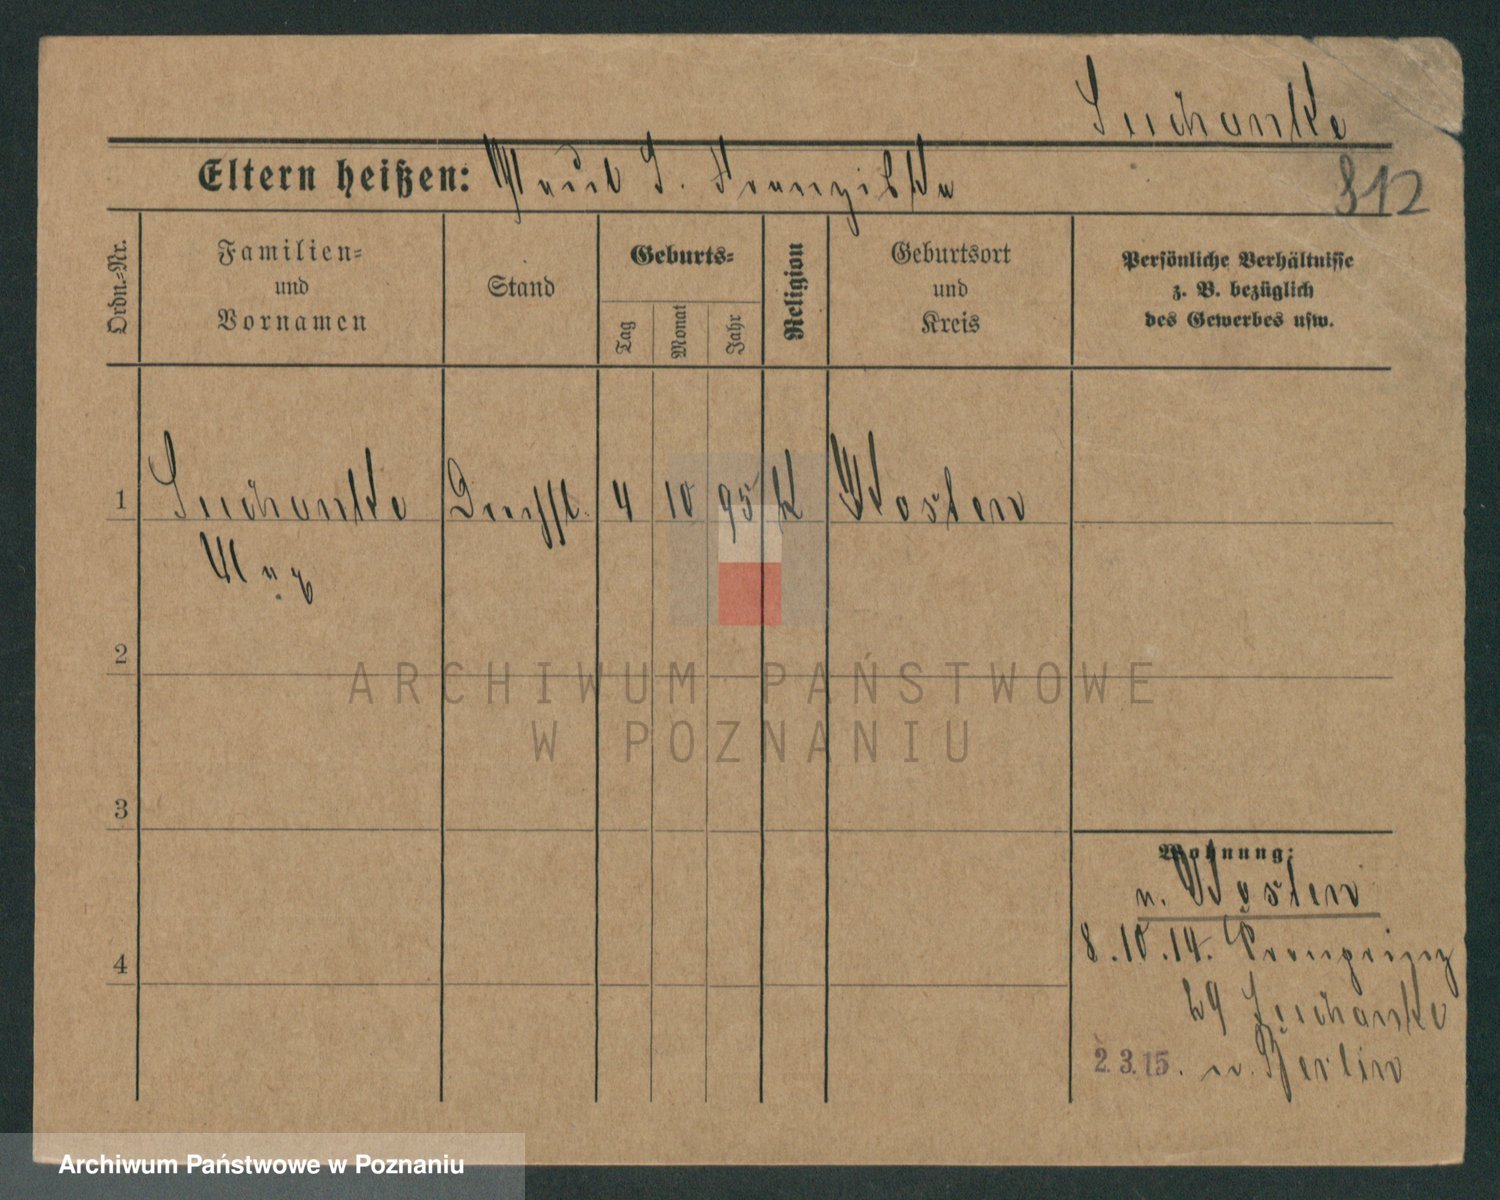 Suchanke
Eltern heißen: S. Franziska
812
Ordn.-Nr.
Familien-
und
Vornamen
Stand
Geburts-
Tag
Monat
Jahr
Religion
Geburtsort
und
Kreis
Persönliche Verhältnisse
z. B. bezüglich
des Gewerbes usw.
1 Suchanke 4 10 95 K Kosten
Max
2
ARCHIWUM PAŃSTWOWE
W POZNANIU
3
Wohnung:
n. Kosten
4
8.10.14. Kronprinz
29 Suchanke
2.3.15. n. Berlin
Archiwum Państwowe w Poznaniu